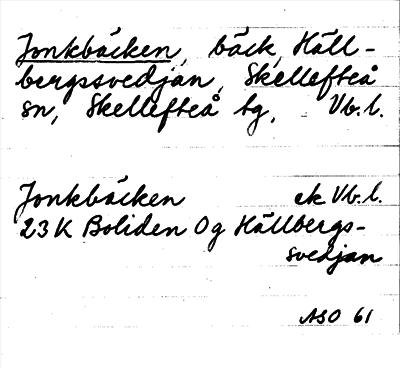 Jonkbäcken, bäck, Häll-
bergssvedjan, Skellefteå
sn, Skellefteå tg, Vb.l.
Jonkbäcken ek Vb.l.
23K Boliden 0g Hällbergs-
svedjan
ASO 61